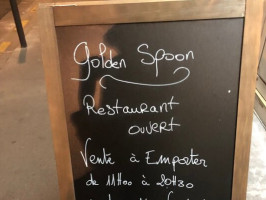 Golden Spoon
Restaurant
ouvert
Vente à Emporter
de 11H00 à 20H30